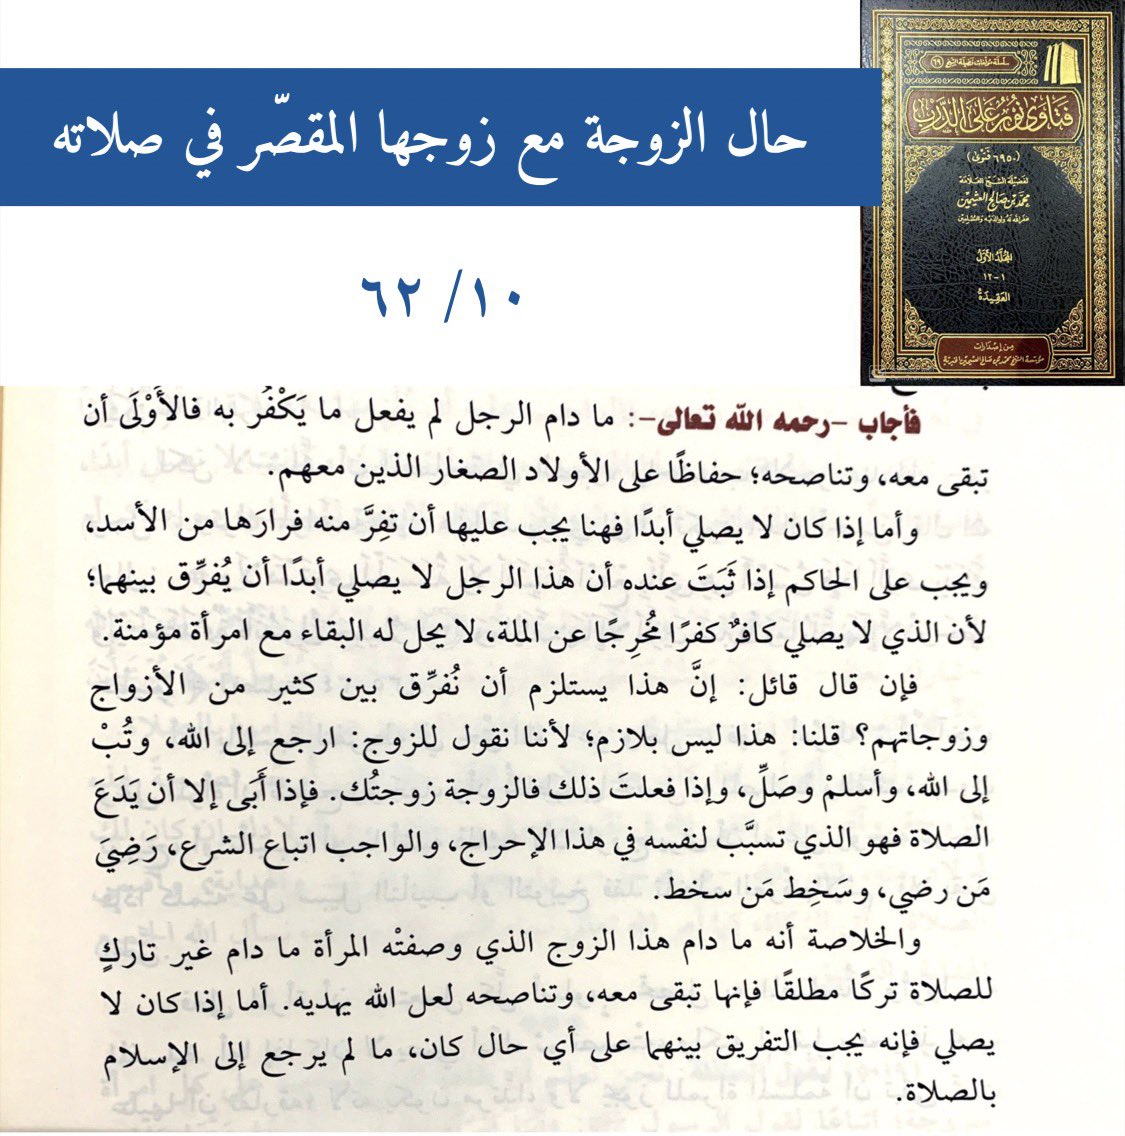 حال الزوجة مع زوجها المقصّر في صلاته
١٠/ ٦٢
فتاوى نور على الدرب
(٦٩٥٠ فتوى)
لفضيلة الشيخ العلامة
محمد بن صالح العثيمين
غفر الله له ولوالديه وللمسلمين
المجلد الأول
١-١٢
العقيدة
من إصدارات
مؤسسة الشيخ محمد بن صالح العثيمين الخيرية
فأجاب -رحمه الله تعالى-: ما دام الرجل لم يفعل ما يَكْفُر به فالأَوْلَى أن
تبقى معه، وتناصحه؛ حفاظًا على الأولاد الصغار الذين معهم.
وأما إذا كان لا يصلي أبدًا فهنا يجب عليها أن تفِرَّ منه فرارَها من الأسد،
ويجب على الحاكم إذا ثَبَتَ عنده أن هذا الرجل لا يصلي أبدًا أن يُفرِّق بينهما؛
لأن الذي لا يصلي كافرٌ كفرًا مُخرِجًا عن الملة، لا يحل له البقاء مع امرأة مؤمنة.
فإن قال قائل: إنَّ هذا يستلزم أن نُفرِّق بين كثير من الأزواج
وزوجاتهم؟ قلنا: هذا ليس بلازم؛ لأننا نقول للزوج: ارجع إلى الله، وتُبْ
إلى الله، وأسلمْ وصَلِّ، وإذا فعلتَ ذلك فالزوجة زوجتُك. فإذا أَبَى إلا أن يَدَعَ
الصلاة فهو الذي تسبَّب لنفسه في هذا الإحراج، والواجب اتباع الشرع، رَضِيَ
مَن رضي، وسَخِط مَن سخط.
والخلاصة أنه ما دام هذا الزوج الذي وصفتْه المرأة ما دام غير تاركٍ
للصلاة تركًا مطلقًا فإنها تبقى معه، وتناصحه لعل الله يهديه. أما إذا كان لا
يصلي فإنه يجب التفريق بينهما على أي حال كان، ما لم يرجع إلى الإسلام
بالصلاة.